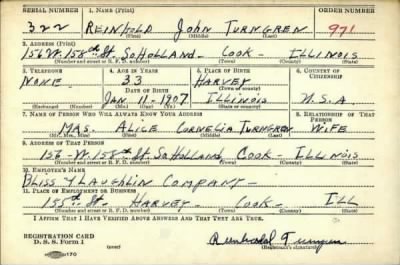 SERIAL NUMBER 1. NAME (Print) ORDER NUMBER
322 REINHOLD JOHN TURNGREN 971
(First) (Middle) (Last)
2. ADDRESS (Print)
156 W. 155th St. So HOLLAND - COOK - ILLINOIS
(Number and street or R. F. D. number) (Town) (County) (State)
3. TELEPHONE 4. AGE IN YEARS 5. PLACE OF BIRTH 6. COUNTRY OF CITIZENSHIP
NONE 33 HARVEY
DATE OF BIRTH (Town or county)
JAN 11 - 1907 ILLINOIS U.S.A.
(Exchange) (Number) (Mo.) (Day) (Yr.) (State or country)
7. NAME OF PERSON WHO WILL ALWAYS KNOW YOUR ADDRESS 8. RELATIONSHIP OF THAT PERSON
MRS. ALICE CORNELIA TURNGREN WIFE
(Mr., Mrs., Miss) (First) (Middle) (Last)
9. ADDRESS OF THAT PERSON
156 - W. 155th St So HOLLAND COOK - ILLINOIS
(Number and street or R. F. D. number) (Town) (County) (State)
10. EMPLOYER'S NAME
BLISS & LAUGHLIN COMPANY
11. PLACE OF EMPLOYMENT OR BUSINESS
155th St. - HARVEY - COOK - ILL
(Number and street or R. F. D. number) (Town) (County) (State)
I AFFIRM THAT I HAVE VERIFIED ABOVE ANSWERS AND THAT THEY ARE TRUE.
REGISTRATION CARD
D. S. S. Form 1 Reinhold Turngren
(over) (Registrant's signature)